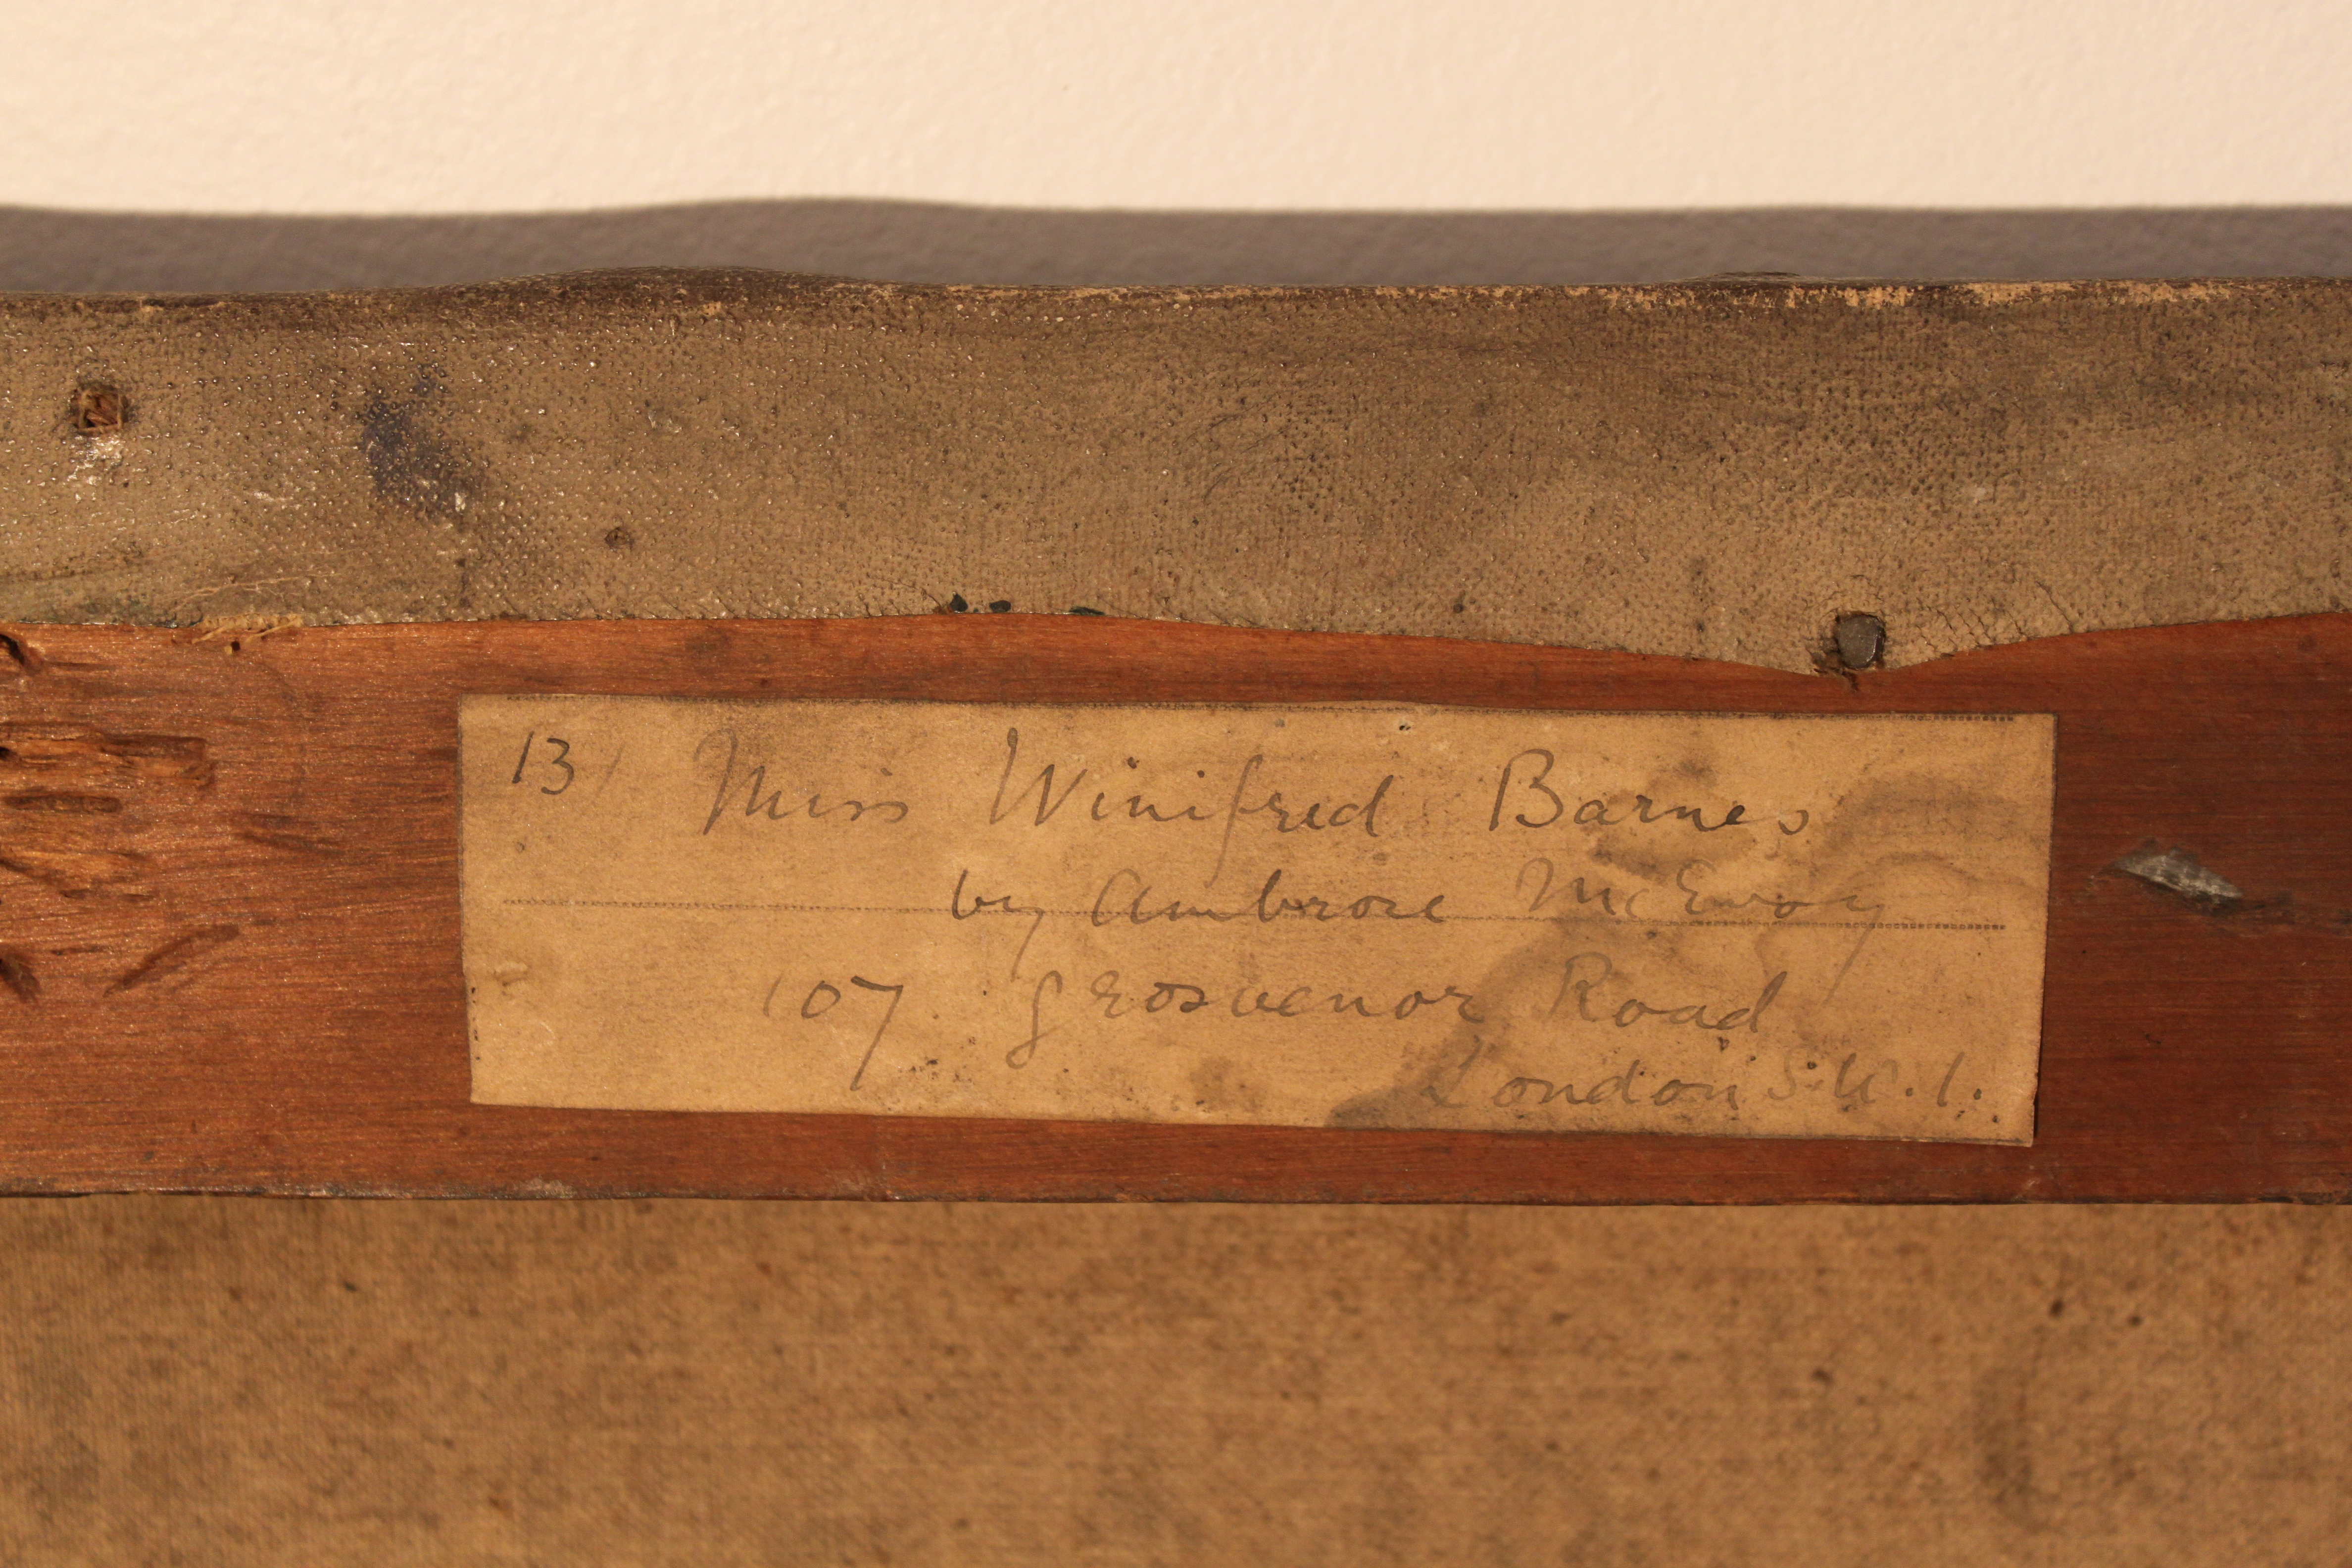 13) Miss Winifred Barnes
by Ambrose McEvoy
107 Grosvenor Road
London S.W.1.